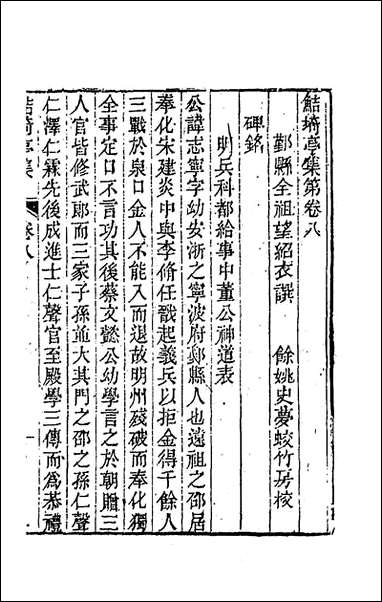 鮚埼亭集第卷八
鄞縣全祖望紹衣譔　餘姚史夢蛟竹房校
碑銘
明兵科都給事中董公神道表
公諱志寧字幼安浙之寧波府鄞縣人也遠祖之邵居
奉化宋建炎中與李脩任戩起義兵以拒金得千餘人
三戰於泉口金人不能入而退故明州殘破而奉化獨
全事定口不言功其後蔡文懿公幼學言之於朝贈三
人官皆修武郎而三家子孫並大其門之邵之孫仁聲
仁澤仁霖先後成進士仁聲官至殿學三傳而爲恭禮
鮚埼亭集
卷八
一